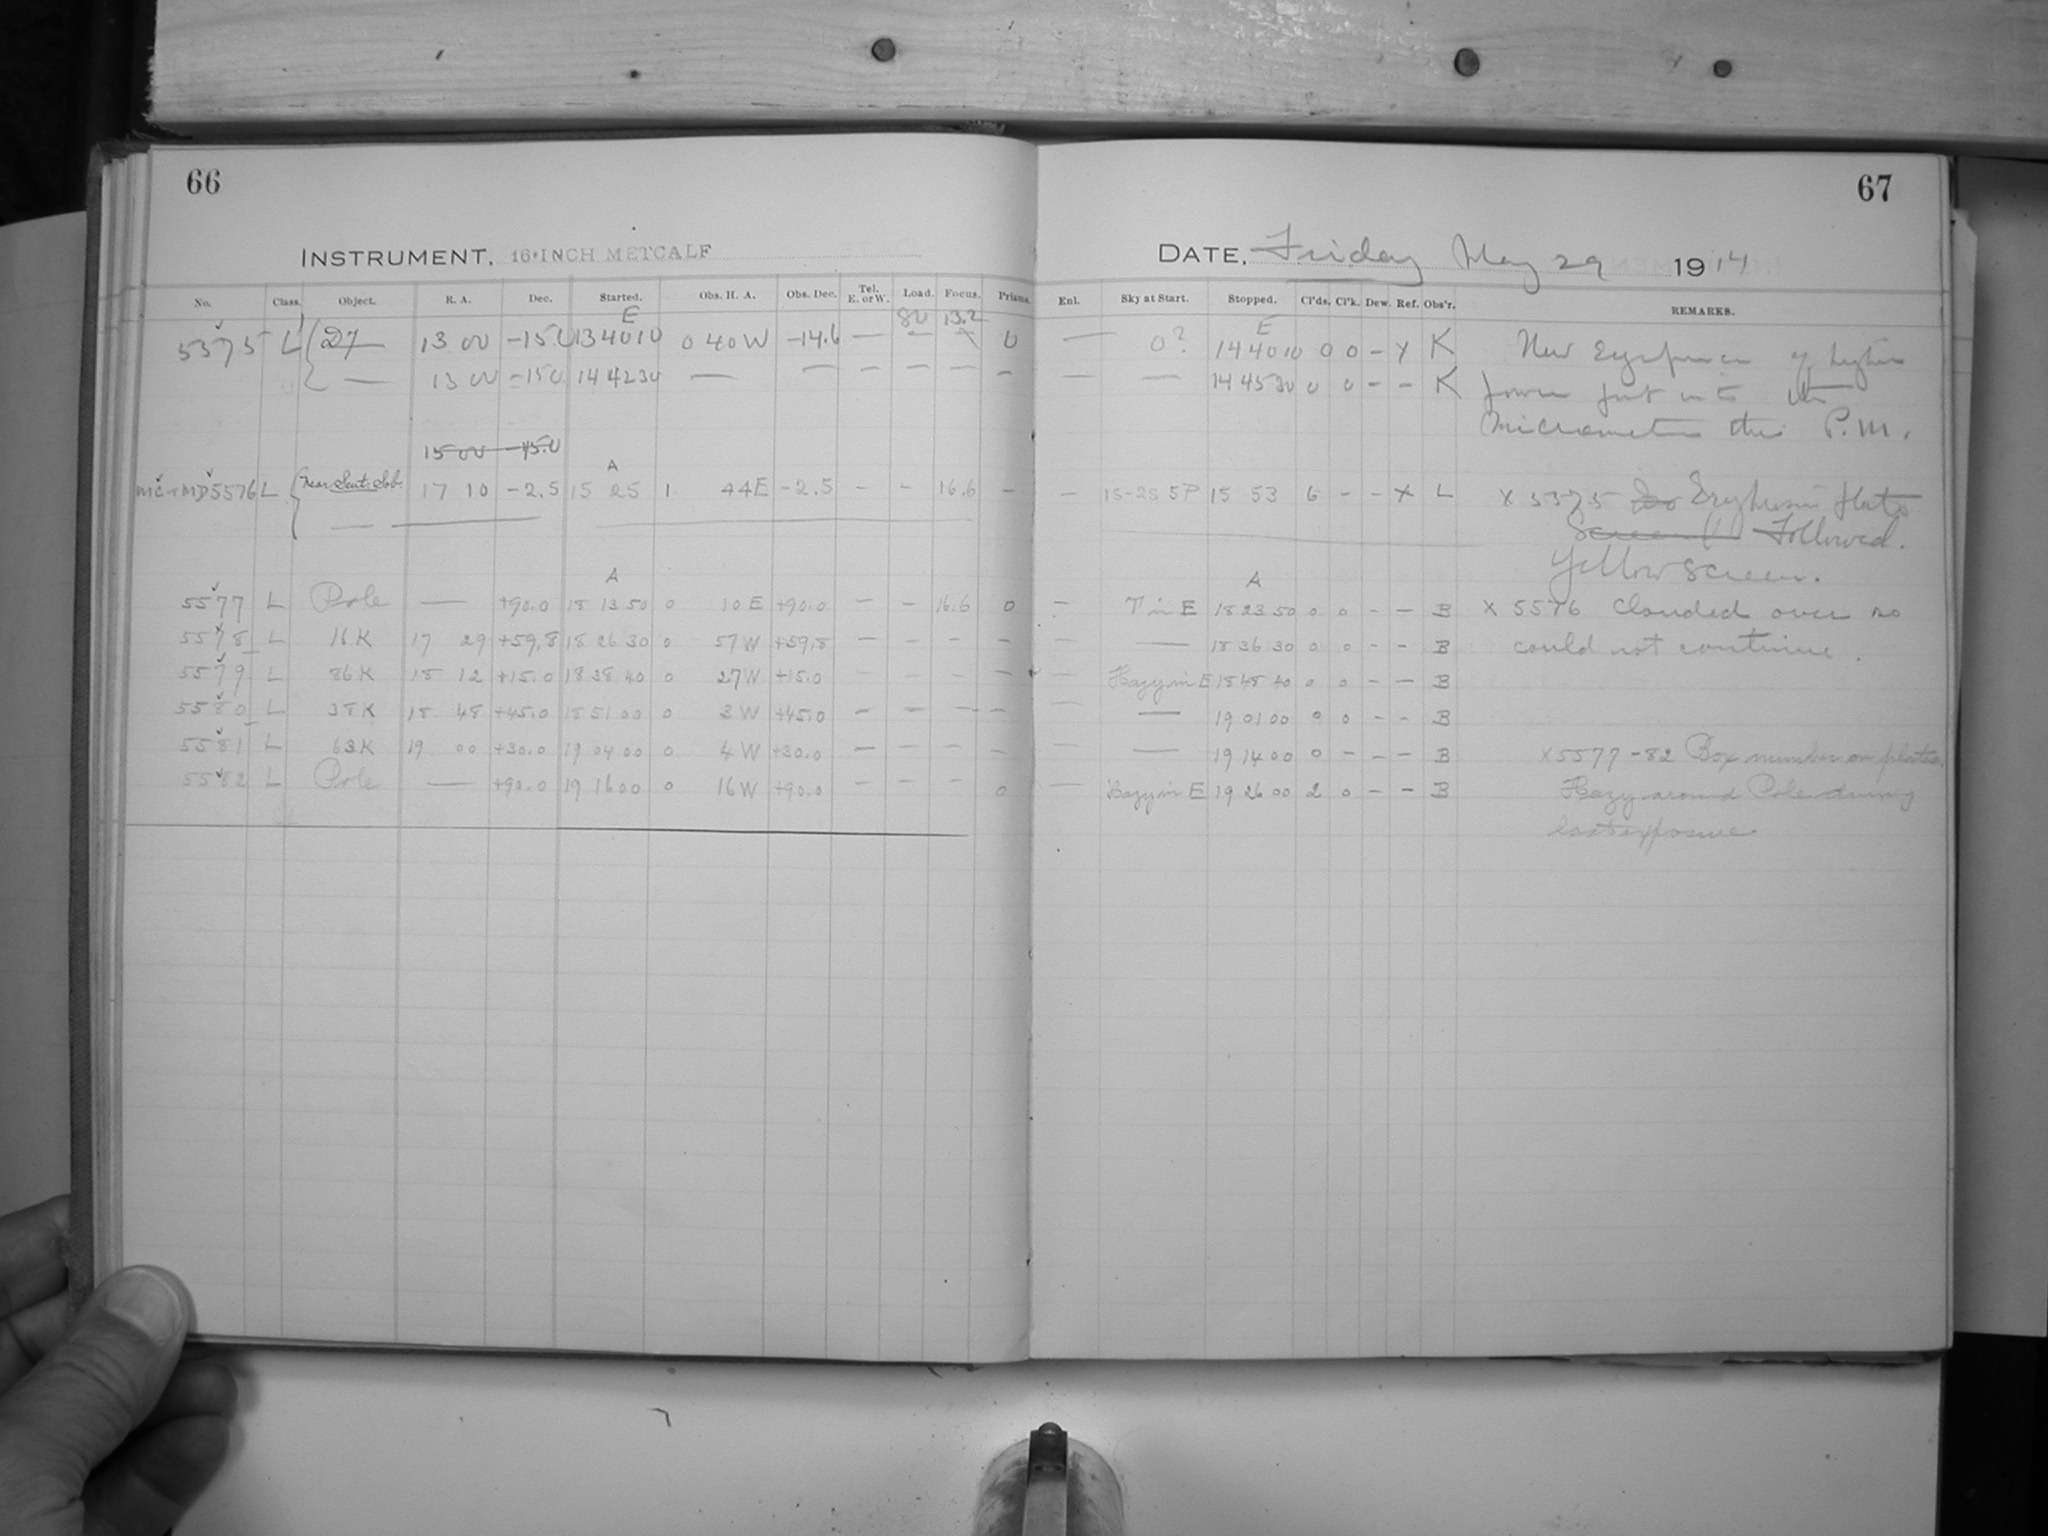 66
67
INSTRUMENT. 16-INCH METCALF
DATE, Friday May 29 1914
No. Class. Object. R. A. Dec. Started. Obs. H. A. Obs. Dec. Tel. E. or W. Load. Focus. Prisms Enl. Sky at Start. Stopped. Cl'ds. Cl'k. Dew. Ref. Obs'r. REMARKS.
E 80 13.2 E
5575 L 27 13 00 -15.0 13 40 10 0 40 W -14.6 — 0 — 0? 14 40 10 0 0 - x K New Eyepiece of higher
— 13 00 -15.0 14 42 30 — — — — — — — — 14 45 30 0 0 - - K power put into the
Micrometer this P.M.
15 00 -15.0
A
MC + MD5576 L 17 10 -2.5 15 25 1 44 E -2.5 - - 16.6 - - 15-25 5P 15 53 6 - - x L x 5575
Followed.
Yellow Screen.
A A
5577 L Pole — +90.0 18 13 50 0 10 E +90.0 - - 16.6 0 - in E 18 23 50 0 0 - - B x 5576 Clouded over so
5578 L 16 K 17 29 +59.8 18 26 30 0 57 W +59.8 - - - - - — 18 36 30 0 0 - - B could not continue.
5579 L 86 K 18 12 +15.0 18 38 40 0 27 W +15.0 - - - - - Hazy in E 18 48 40 0 0 - - B
5580 L 38 K 18 48 +45.0 18 51 00 0 3 W +45.0 - - - - - — 19 01 00 0 0 - - B
5581 L 63 K 19 00 +30.0 19 04 00 0 4 W +30.0 - - - - - — 19 14 00 0 - - - B x 5577-82 Box number on plates.
5582 L Pole — +90.0 19 16 00 0 16 W +90.0 - - - 0 - Hazy in E 19 26 00 2 0 - - B Hazy around Pole during
last exposure